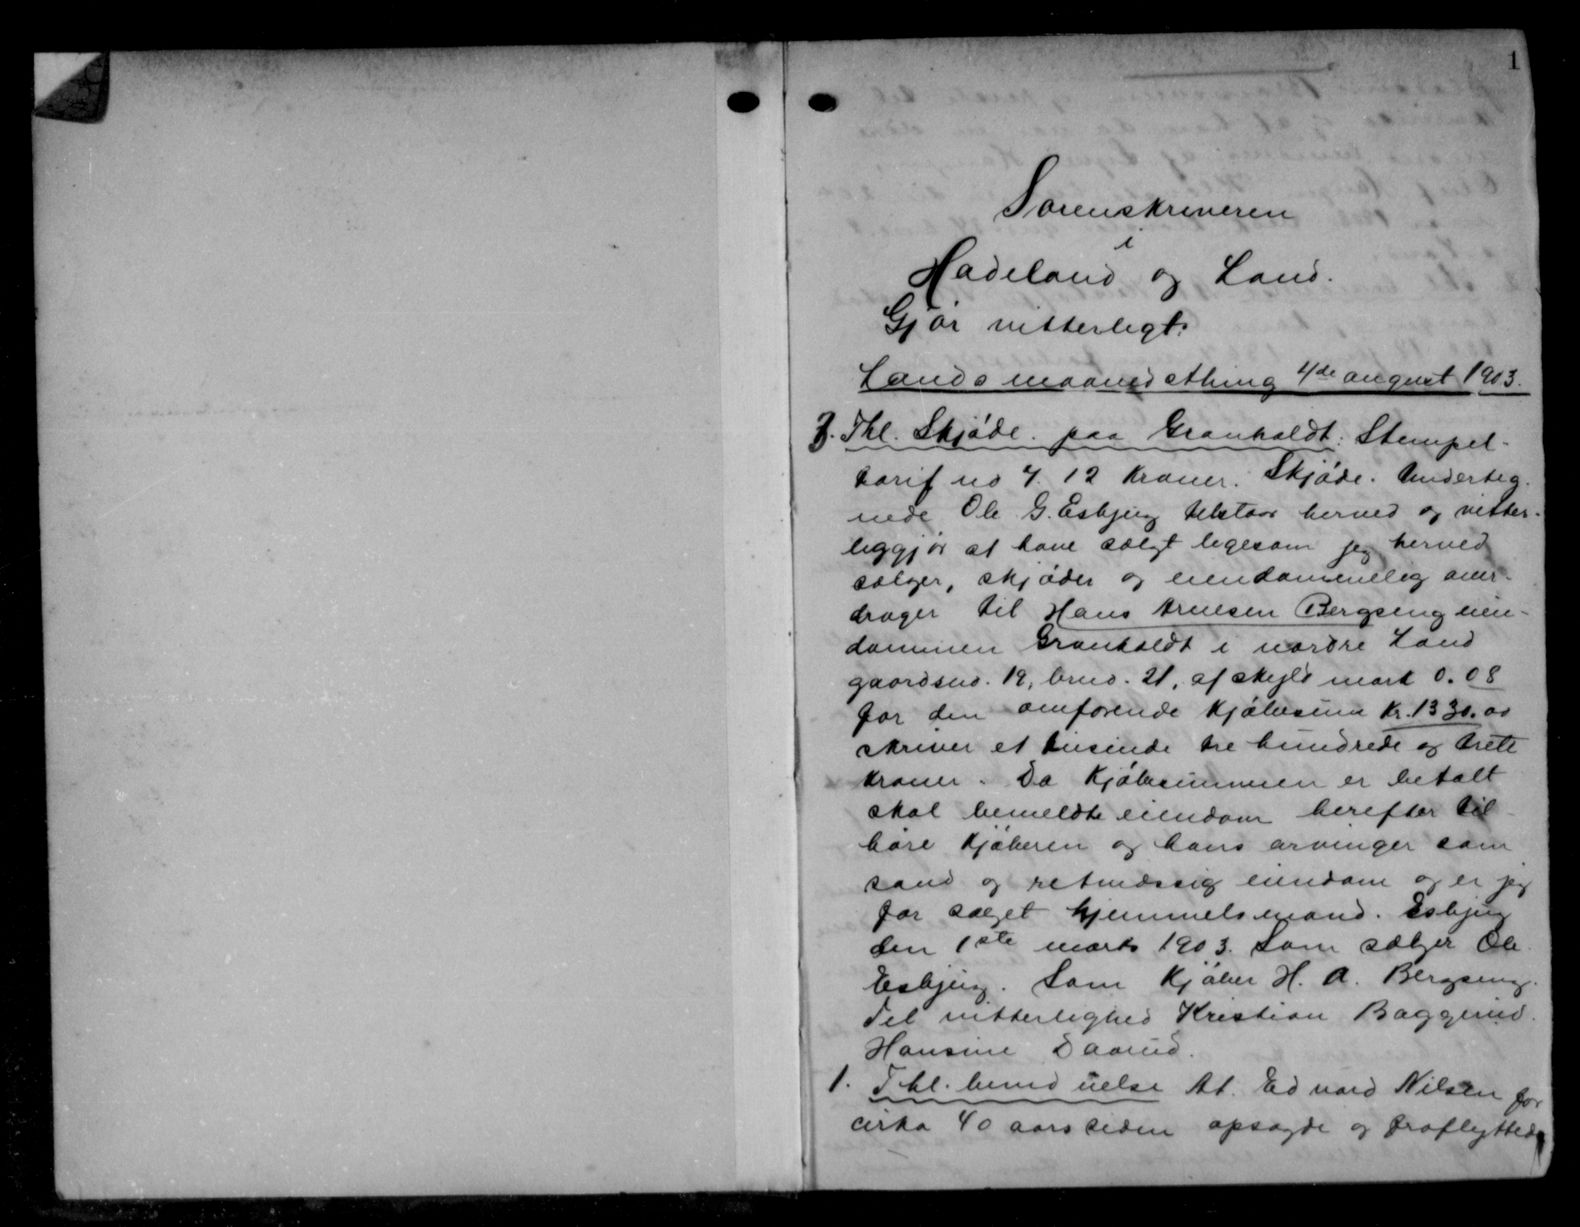 1
Sorenskriveren
i
Hadeland og Land.
Gjør vitterligt:
Lands maanedsthing 4de august 1903.
3. Thl. Skjøde paa Granholdt: Stempel-
tarif no 4. 12 Kroner. Skjøde. Underteg-
nede Ole G. Esbjug tilstaar herved og vitter-
liggjør at have solgt ligesom jeg herved
sælger, skjøder og eiendommelig over-
drager til Hans Arnesen Bergseng eien-
dommen Granholdt i nordre Land
gaardsno. 19, brno. 21, af skyld mark 0.08
for den omforende Kjøbesum Kr. 1330.00
skriver et tusinde tre hundrede og treti
Kroner. Da Kjøbesummen er betalt
skal bemeldte eiendom herefter til
høre Kjøberen og hans arvinger som
sand og retmæssig eiendom og er jeg
for salget hjemmelsmand. Esbjug
den 1ste marts 1903. Som sælger Ole
Esbjug. Som Kjøber H. A. Bergseng.
Til vitterlighed Kristian Baggerud.
Hansine Daarud.
1. Thl. At Edvard Nilsen for
cirka 40 aar siden opsagde og fraflyttede